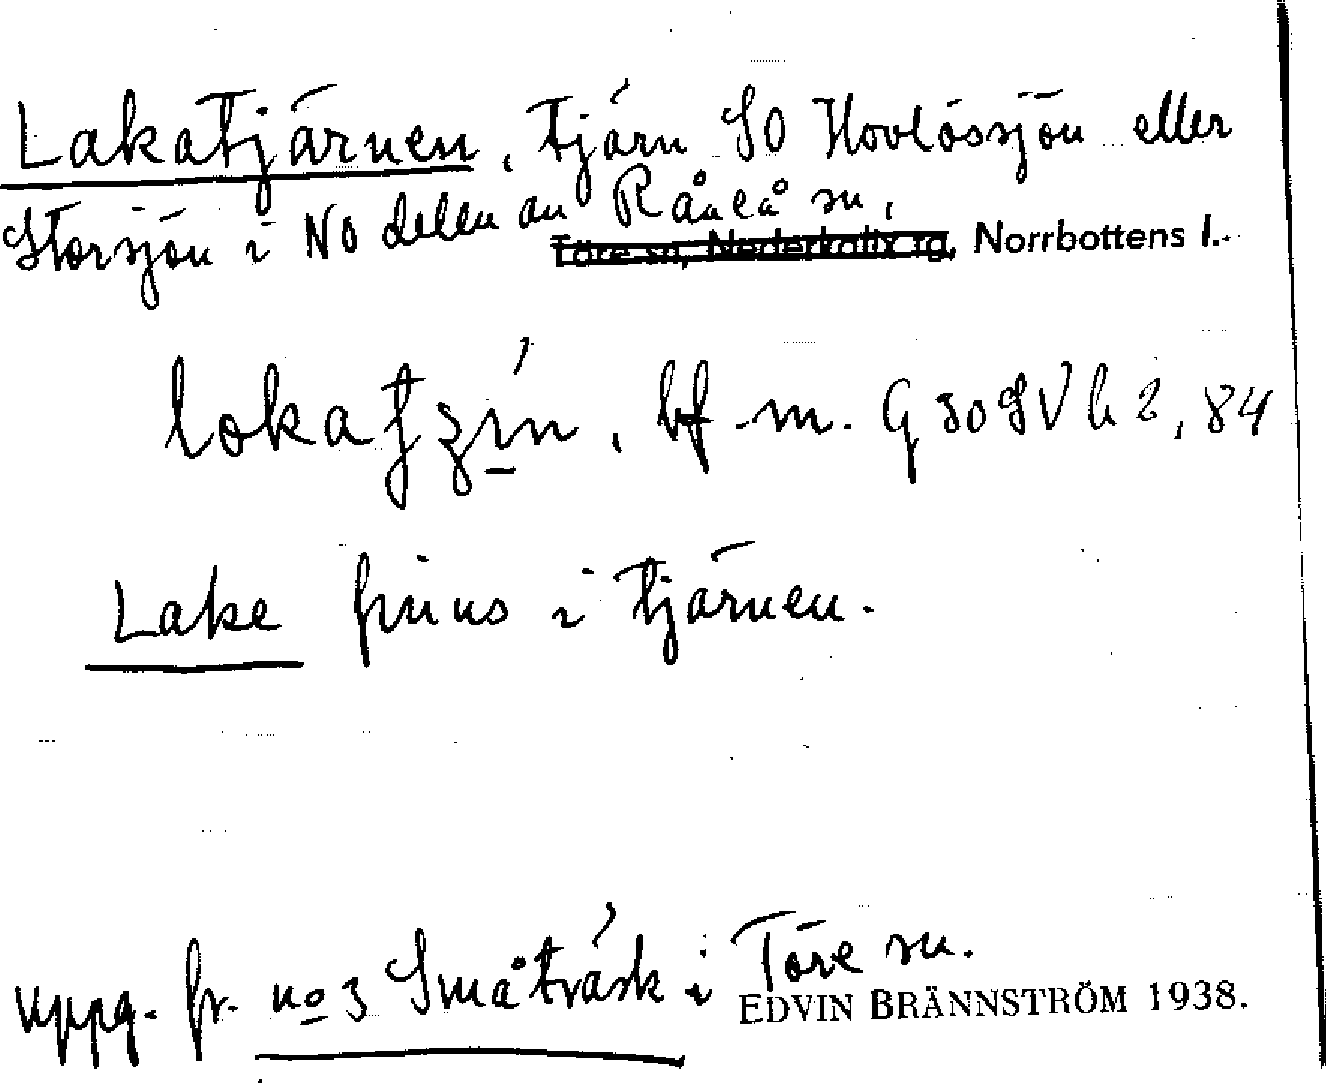 Lakatjärnen, tjärn SO Hovlössjön eller
Storsjön i NO delen av Råneå sn,
Töre sn, Nederkalix tg, Norrbottens l.
bf. m. G 30 SV h 2, 84
Lake finns i tjärnen.
uppg. fr. no 3 Småträsk i Töre sn.
EDVIN BRÄNNSTRÖM 1938.